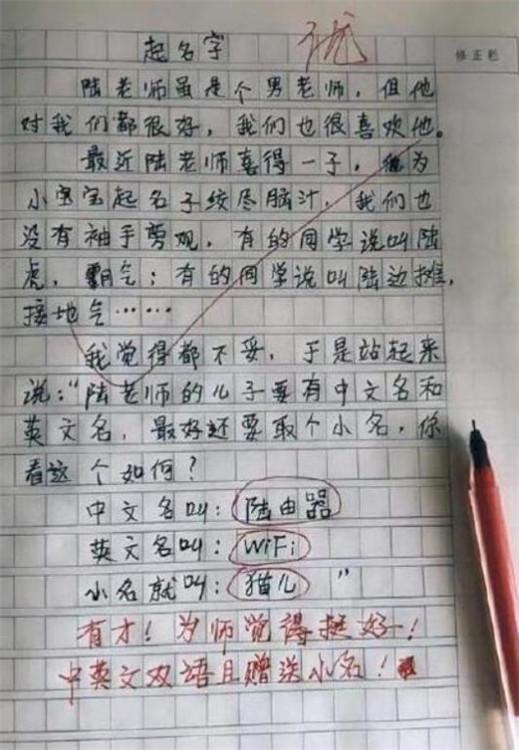 起名字
优
修正栏
陆老师虽是个男老师，但他
对我们都很好，我们也很喜欢他。
最近陆老师喜得一子，他为
小宝宝起名子绞尽脑汁，我们也
没有袖手旁观，有的同学说叫陆
虎，霸气；有的同学说叫陆边摊，
接地气……
我觉得都不妥，于是站起来
说：“陆老师的儿子要有中文名和
英文名，最好还要取个小名，你
看这个如何？
中文名叫：陆由器
英文名叫：WiFi
小名就叫：猫儿”
有才！为师觉得挺好！
中英文双语且赠送小名！